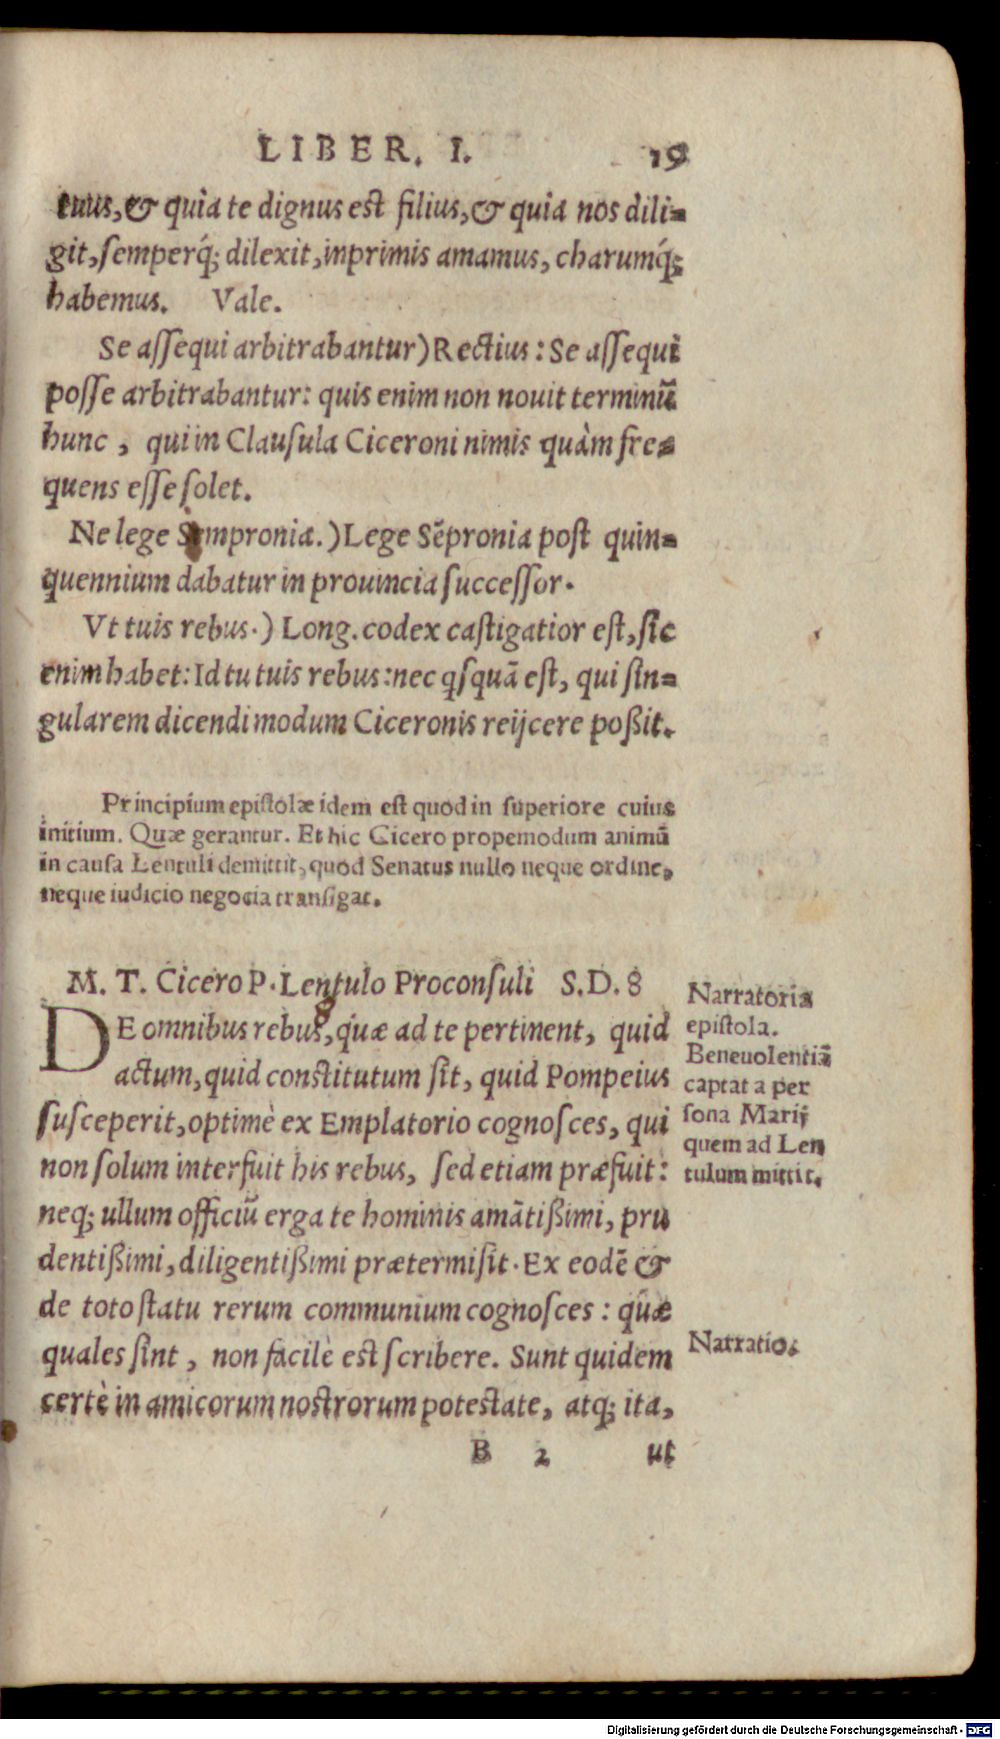 LIBER. I. 19
tuus, & quia te dignus est filius, & quia nos dili-
git, semperq́; dilexit, inprimis amamus, charumq́;
habemus. Vale.
Se assequi arbitrabantur) Rectius: Se assequi
posse arbitrabantur: quis enim non nouit terminũ
hunc, qui in Clausula Ciceroni nimis quàm fre-
quens esse solet.
Ne lege Sempronia.) Lege Sẽpronia post quin-
quennium dabatur in prouincia successor.
Vt tuis rebus.) Long. codex castigatior est, sic
enim habet: Id tu tuis rebus: nec qsquã est, qui sin-
gularem dicendi modum Ciceronis reijcere poßit.
Principium epistolæ idem est quod in superiore cuius
initium. Quæ gerantur. Et hic Cicero propemodum animũ
in causa Lentuli demittit, quod Senatus nullo neque ordine,
neque iudicio negocia transigat.
M. T. Cicero P. Lentulo Proconsuli S. D. 8
DE omnibus rebus, quæ ad te pertinent, quid
actum, quid constitutum sit, quid Pompeius
susceperit, optimè ex Emplatorio cognosces, qui
non solum interfuit his rebus, sed etiam præfuit:
neq; ullum officiũ erga te hominis amãtißimi, pru
dentißimi, diligentißimi prætermisit. Ex eodẽ &
de toto statu rerum communium cognosces: quæ
quales sint, non facilè est scribere. Sunt quidem
certè in amicorum nostrorum potestate, atq; ita,
B 2 ut
Narratoria
epistola.
Beneuolentiã
captat a per
sona Marij
quem ad Len
tulum mittit.
Narratio.
Digitalisierung gefördert durch die Deutsche Forschungsgemeinschaft - DFG